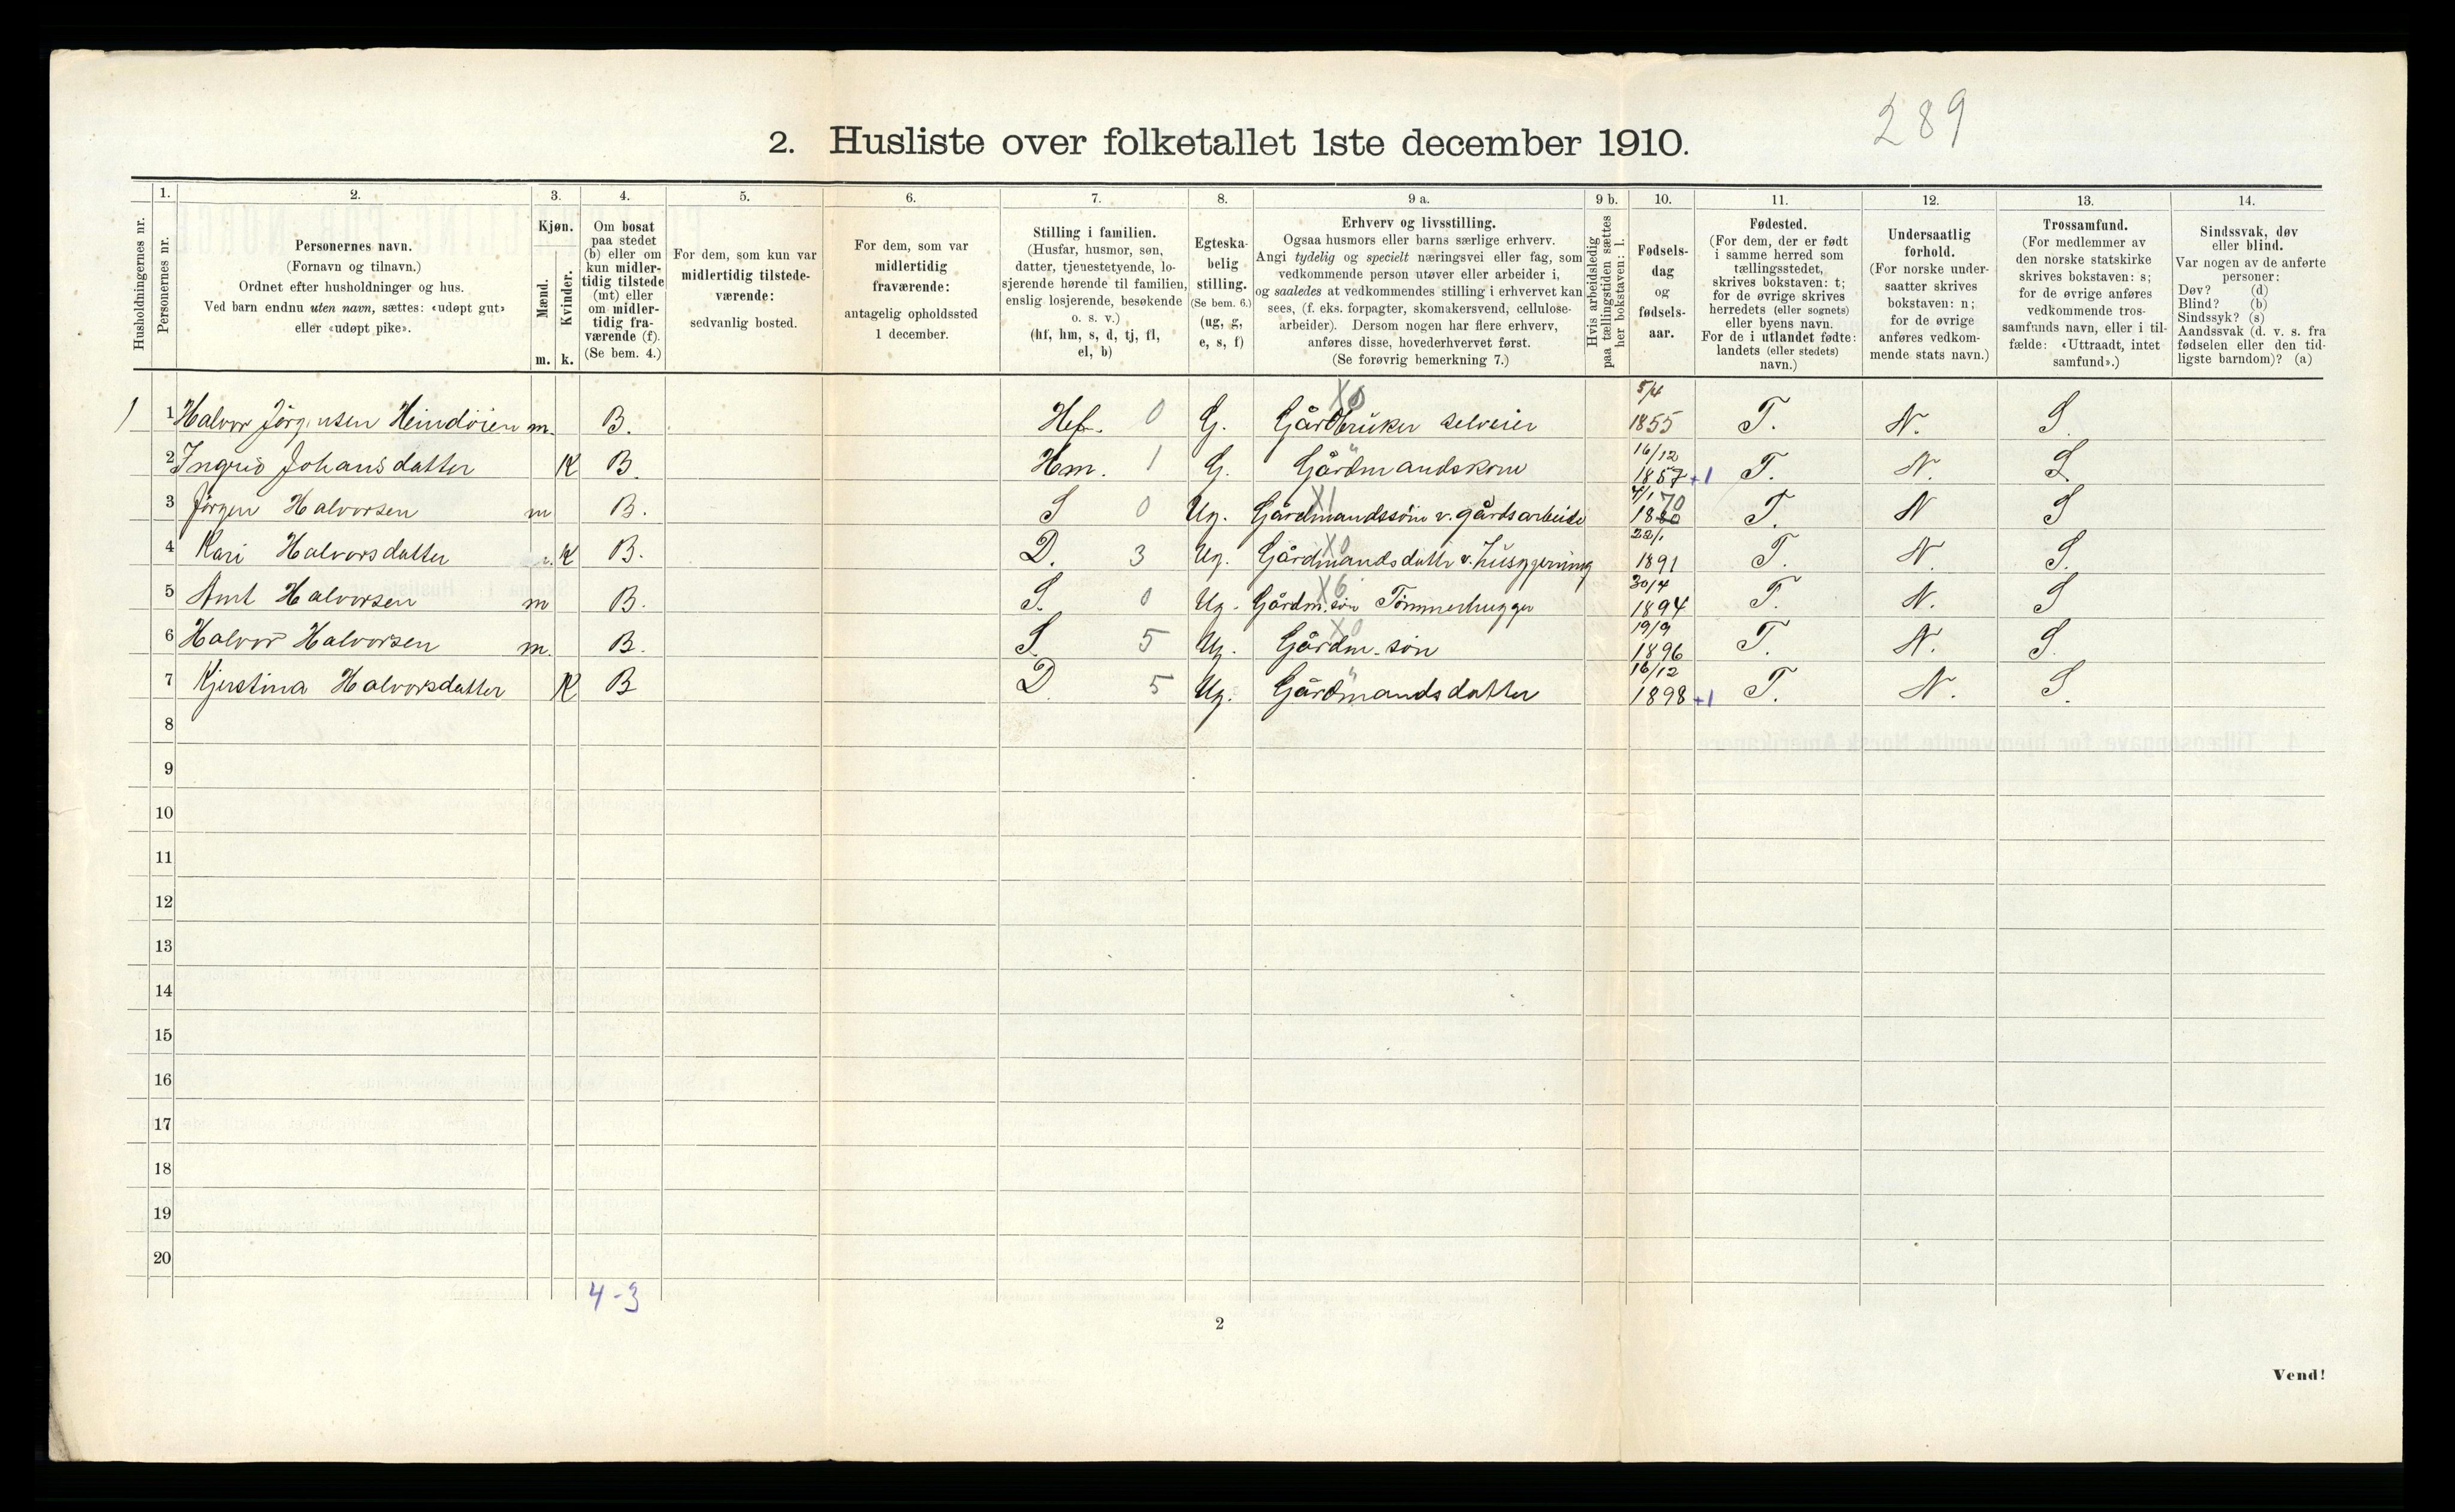 289
2. Husliste over folketallet 1ste december 1910.
Husholdningernes nr.
1. Personernes nr.
2. Personernes navn.
(Fornavn og tilnavn.)
Ordnet efter husholdninger og hus.
Ved barn endnu uten navn, sættes: «udøpt gut»
eller «udøpt pike».
3. Kjøn.
Mænd. m.
Kvinder. k.
4. Om bosat
paa stedet
(b) eller om
kun midler-
tidig tilstede
(mt) eller
om midler-
tidig fra-
værende (f).
(Se bem. 4.)
5. For dem, som kun var
midlertidig tilstede-
værende:
sedvanlig bosted.
6. For dem, som var
midlertidig
fraværende:
antagelig opholdssted
1 december.
7. Stilling i familien.
(Husfar, husmor, søn,
datter, tjenestetyende, lo-
sjerende hørende til familien,
enslig losjerende, besøkende
o. s. v.)
(hf, hm, s, d, tj, fl,
el, b)
8. Egteska-
belig
stilling.
(Se bem. 6.)
(ug, g,
e, s, f)
9 a. Erhverv og livsstilling.
Ogsaa husmors eller barns særlige erhverv.
Angi tydelig og specielt næringsvei eller fag, som
vedkommende person utøver eller arbeider i,
og saaledes at vedkommendes stilling i erhvervet kan
sees, (f. eks. forpagter, skomakersvend, cellulose-
arbeider). Dersom nogen har flere erhverv,
anføres disse, hovederhvervet først.
(Se forøvrig bemerkning 7.)
9 b. Hvis arbeidsledig
paa tællingstiden sættes
her bokstaven: l.
10. Fødsels-
dag
og
fødsels-
aar.
11. Fødested.
(For dem, der er født
i samme herred som
tællingsstedet,
skrives bokstaven: t;
for de øvrige skrives
herredets (eller sognets)
eller byens navn.
For de i utlandet fødte:
landets (eller stedets)
navn.)
12. Undersaatlig
forhold.
(For norske under-
saatter skrives
bokstaven: n;
for de øvrige
anføres vedkom-
mende stats navn.)
13. Trossamfund.
(For medlemmer av
den norske statskirke
skrives bokstaven: s;
for de øvrige anføres
vedkommende tros-
samfunds navn, eller i til-
fælde: «Uttraadt, intet
samfund».)
14. Sindssvak, døv
eller blind.
Var nogen av de anførte
personer:
Døv? (d)
Blind? (b)
Sindssyk? (s)
Aandssvak (d. v. s. fra
fødselen eller den tid-
ligste barndom)? (a)
1) 1 Halvor Jörgensen Heindöien m. B. Hf. 0 G. X0 Gårdbruker selveier 5/4 1855 T. N. S.
2 Ingrid Johansdatter K B. Hm. 1 G. " Gårdmandskone 16/12 1857 +1 T. N. S.
3 Jörgen Halvorsen m B. S 0 Ug. X1 Gårdmandssön v. gårdsarbeide 7/1 1880 70 T. N S
4 Kari Halvorsdatter K B. D. 3 Ug. X0 Gårdmandsdatter v. husgjerning 22/1 1891 T. N. S.
5 Amt Halvorsen m B. S. 0 Ug. X6 Gårdm. sön Tömmerhugger 30/4 1894 T. N. S
6 Halvor Halvorsen m. B. S. 5 Ug. X0 Gårdm. sön 19/9 1896 T. N. S.
7 Kjerstina Halvorsdatter K B D. 5 Ug. " Gårdmandsdatter 16/12 1898 +1 T. N. S.
8
9
10
11
12
13
14
15
16
17
18
19
20
4-3
2
Vend!